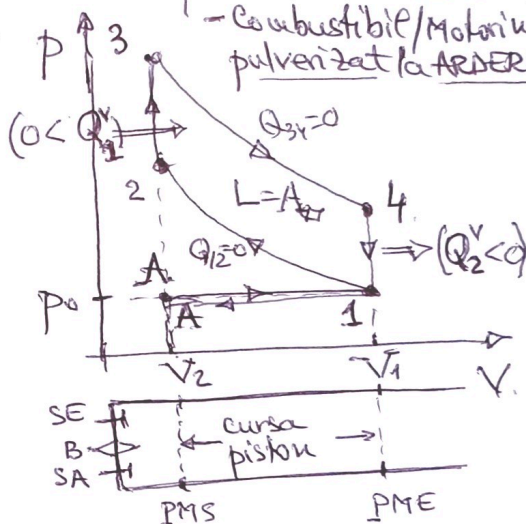 - Combustibil/Motorin
pulverizat la ARDER
p 3
(0< Q₁ⱽ) Q₃₄=0
2 L=A 4
Q₁₂=0 (Q₂ⱽ<0)
A
p₀ A 1
V₂ V₁ V
SE
B cursa
SA piston
PMS PME